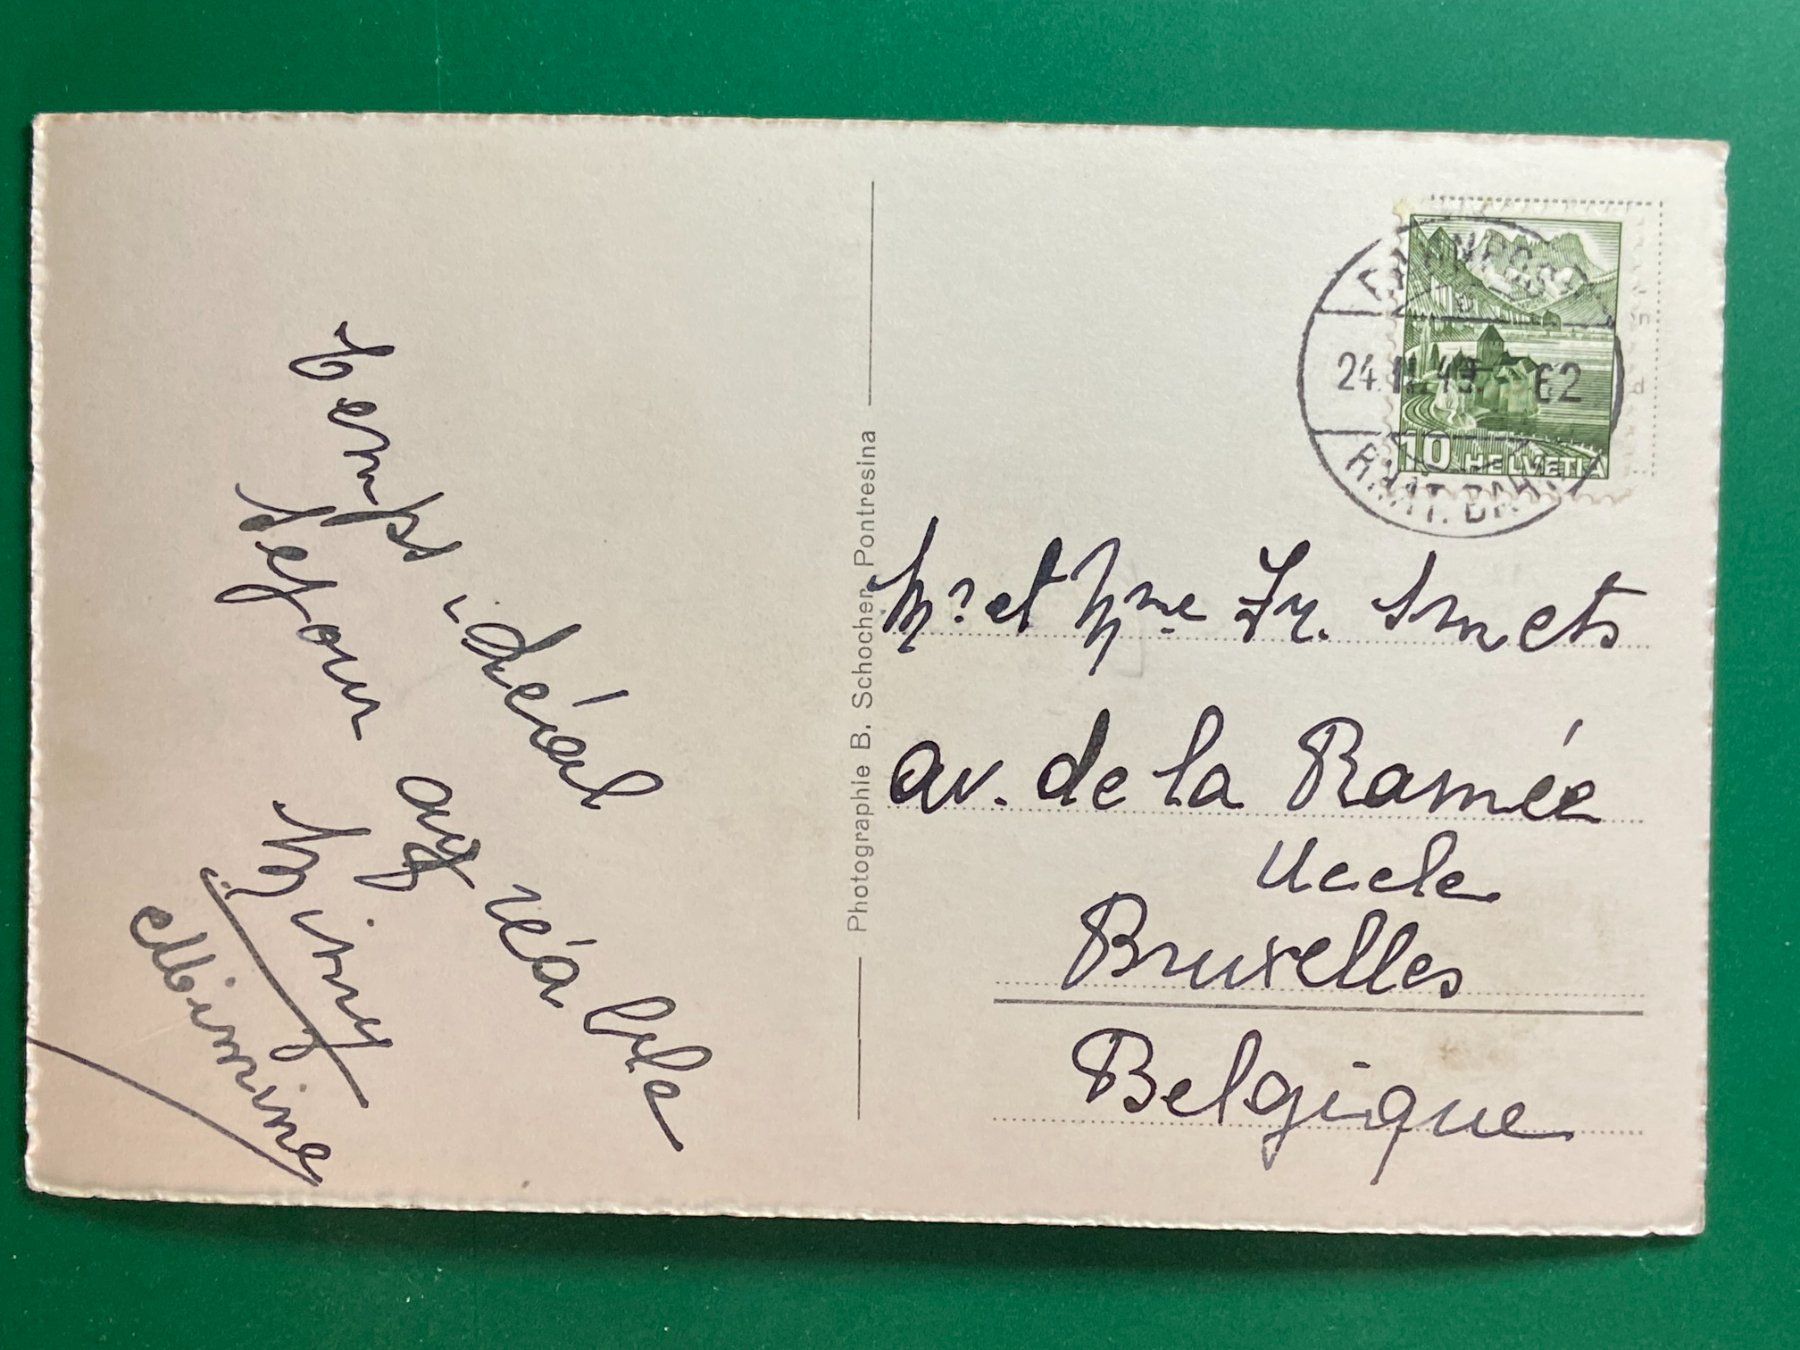 temps idéal
séjour agréable
Miny
Photographie B. Schocher, Pontresina
24.II.49. 62
RHÄT. BAHN
10 HELVETIA
Mr et Mme Fr. Smets
av. de la Ramée
Uccle
Bruxelles
Belgique